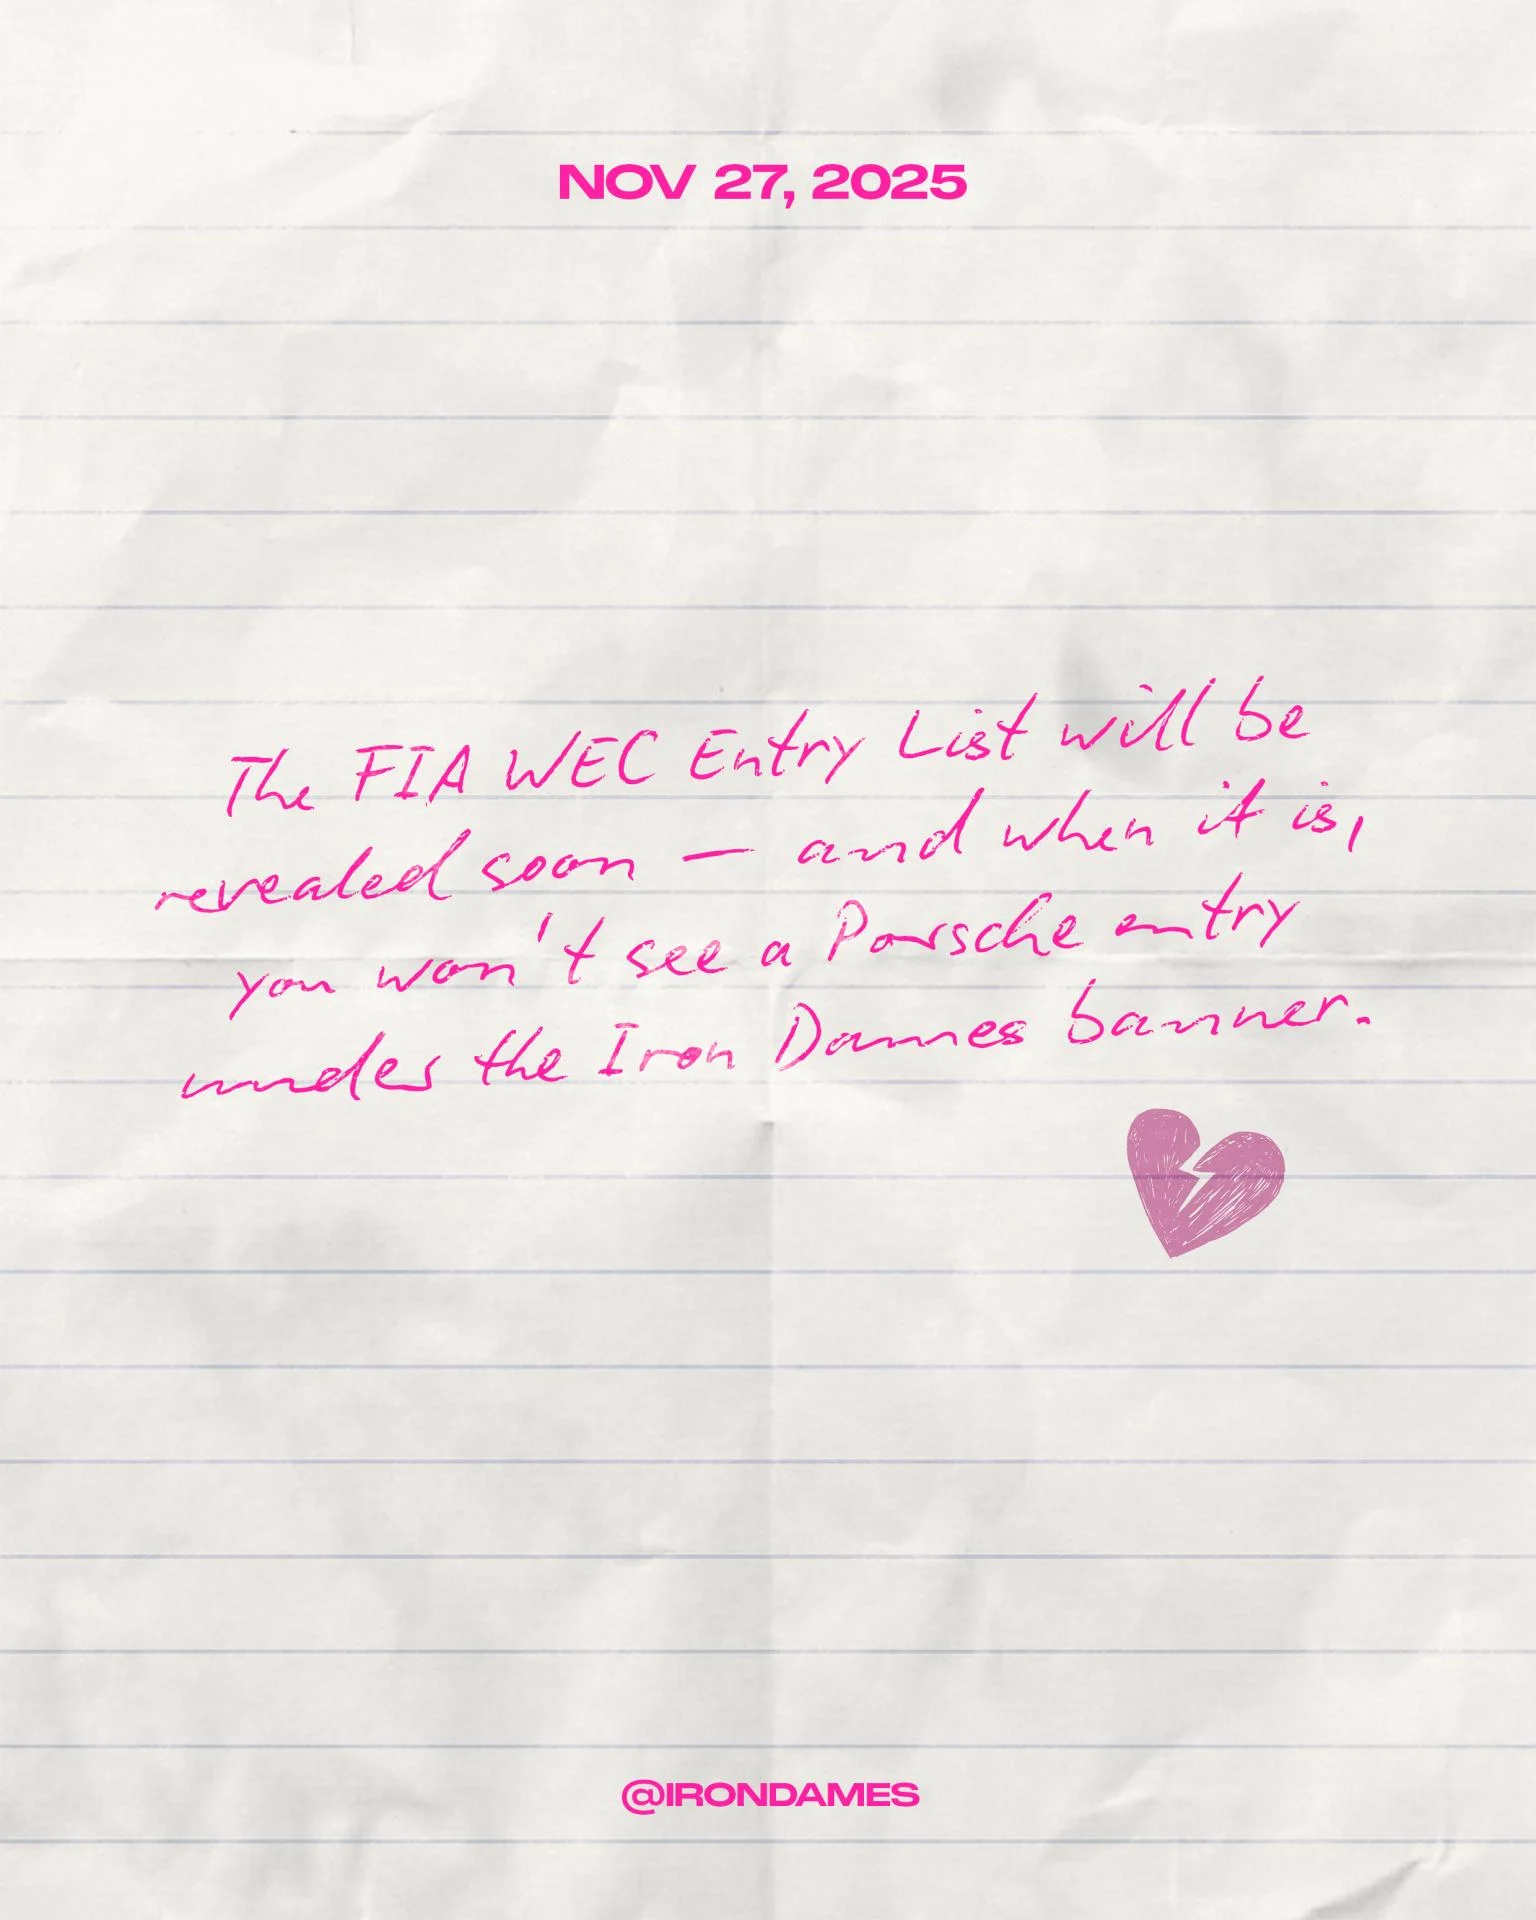 NOV 27, 2025
The FIA WEC Entry List will be
revealed soon — and when it is,
you won't see a Porsche entry
under the Iron Dames banner.
@IRONDAMES